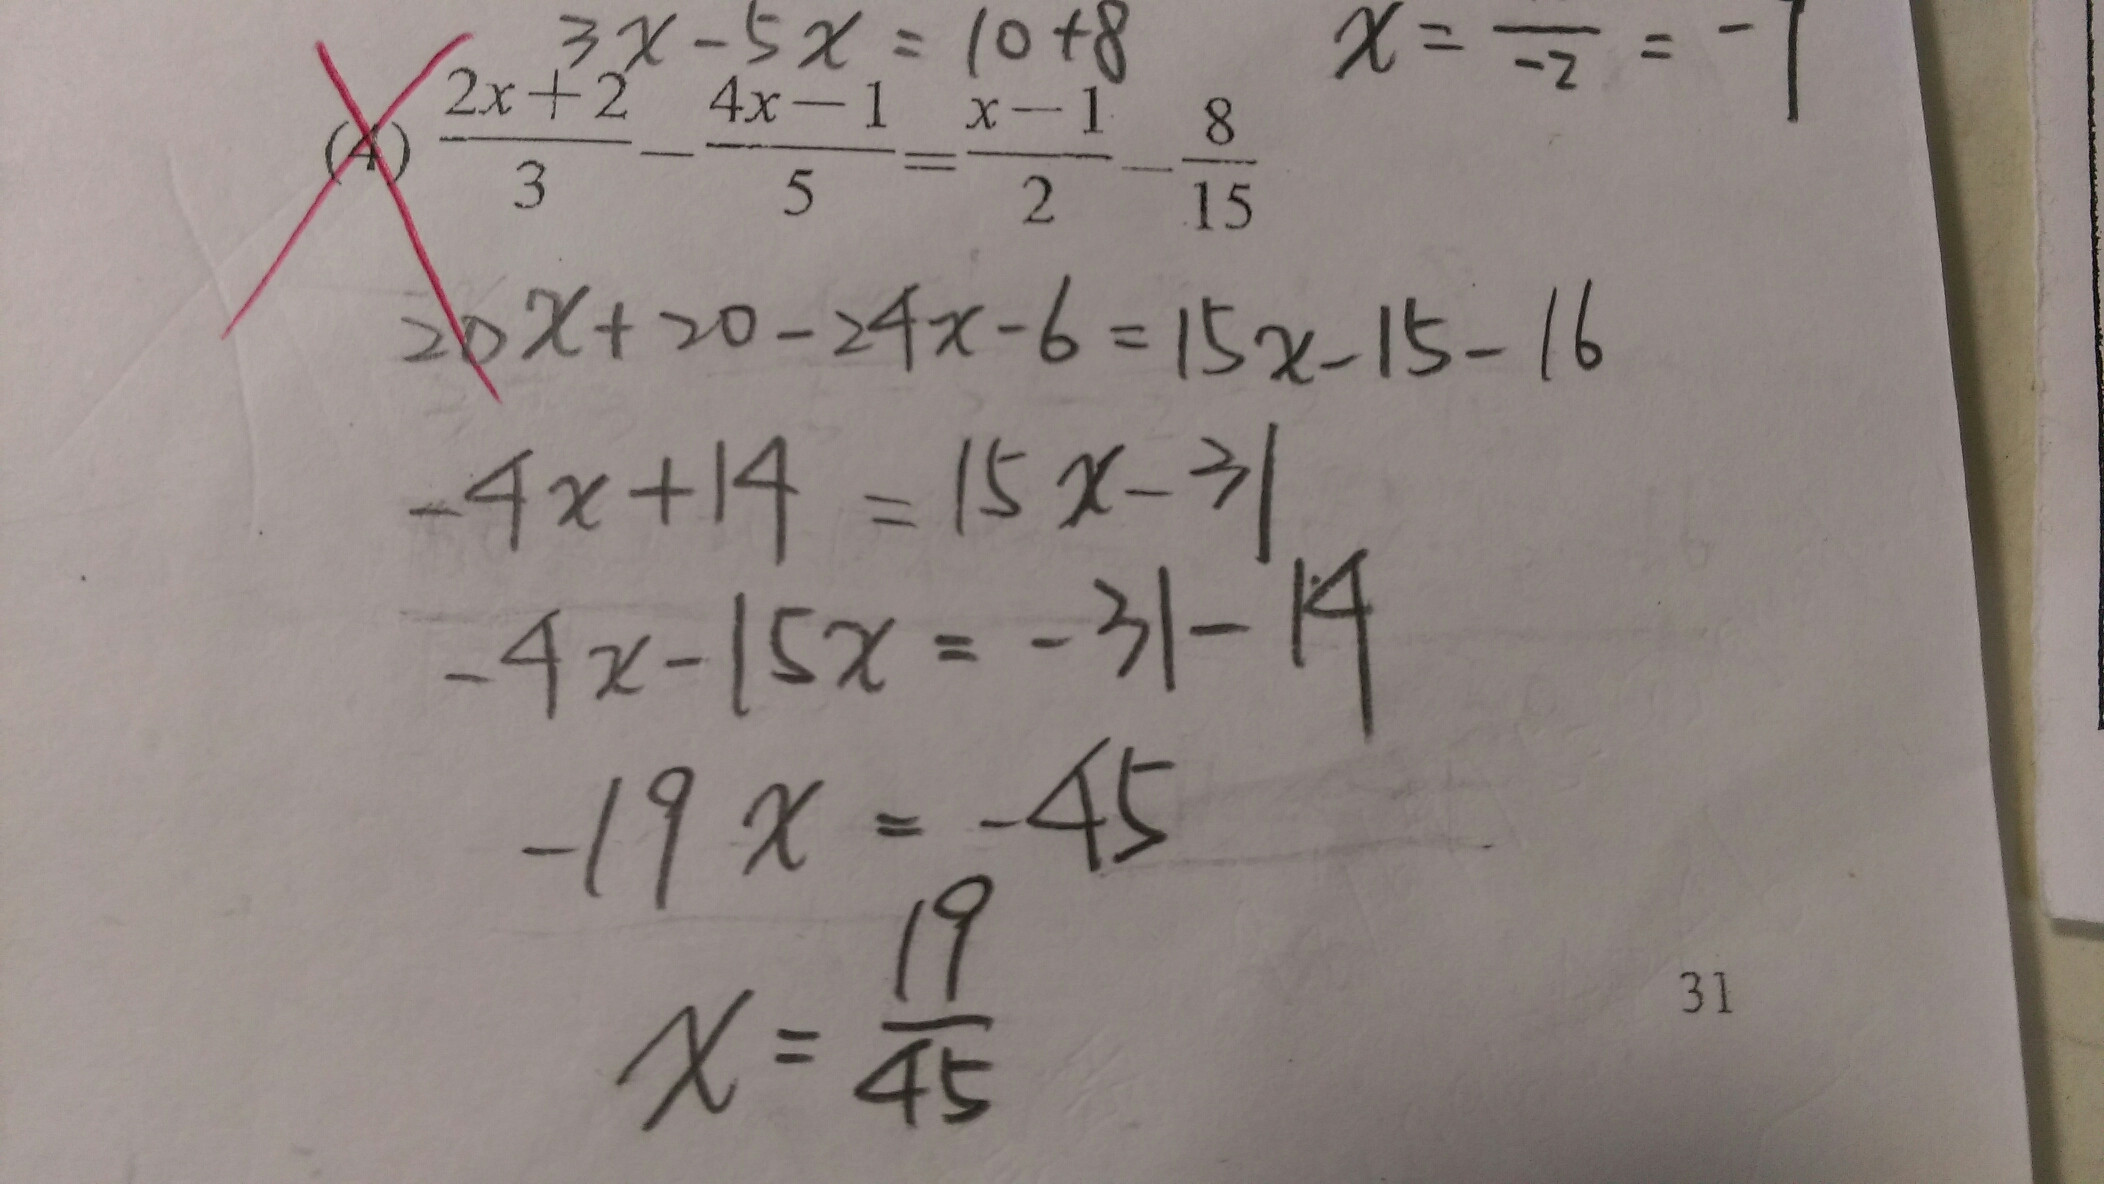 3x-5x=10+8
x = /-2 = -9
(4) (2x+2)/3 - (4x-1)/5 = (x-1)/2 - 8/15
20x+20-24x-6=15x-15-16
-4x+14=15x-31
-4x-15x=-31-14
-19x=-45
x=19/45
31